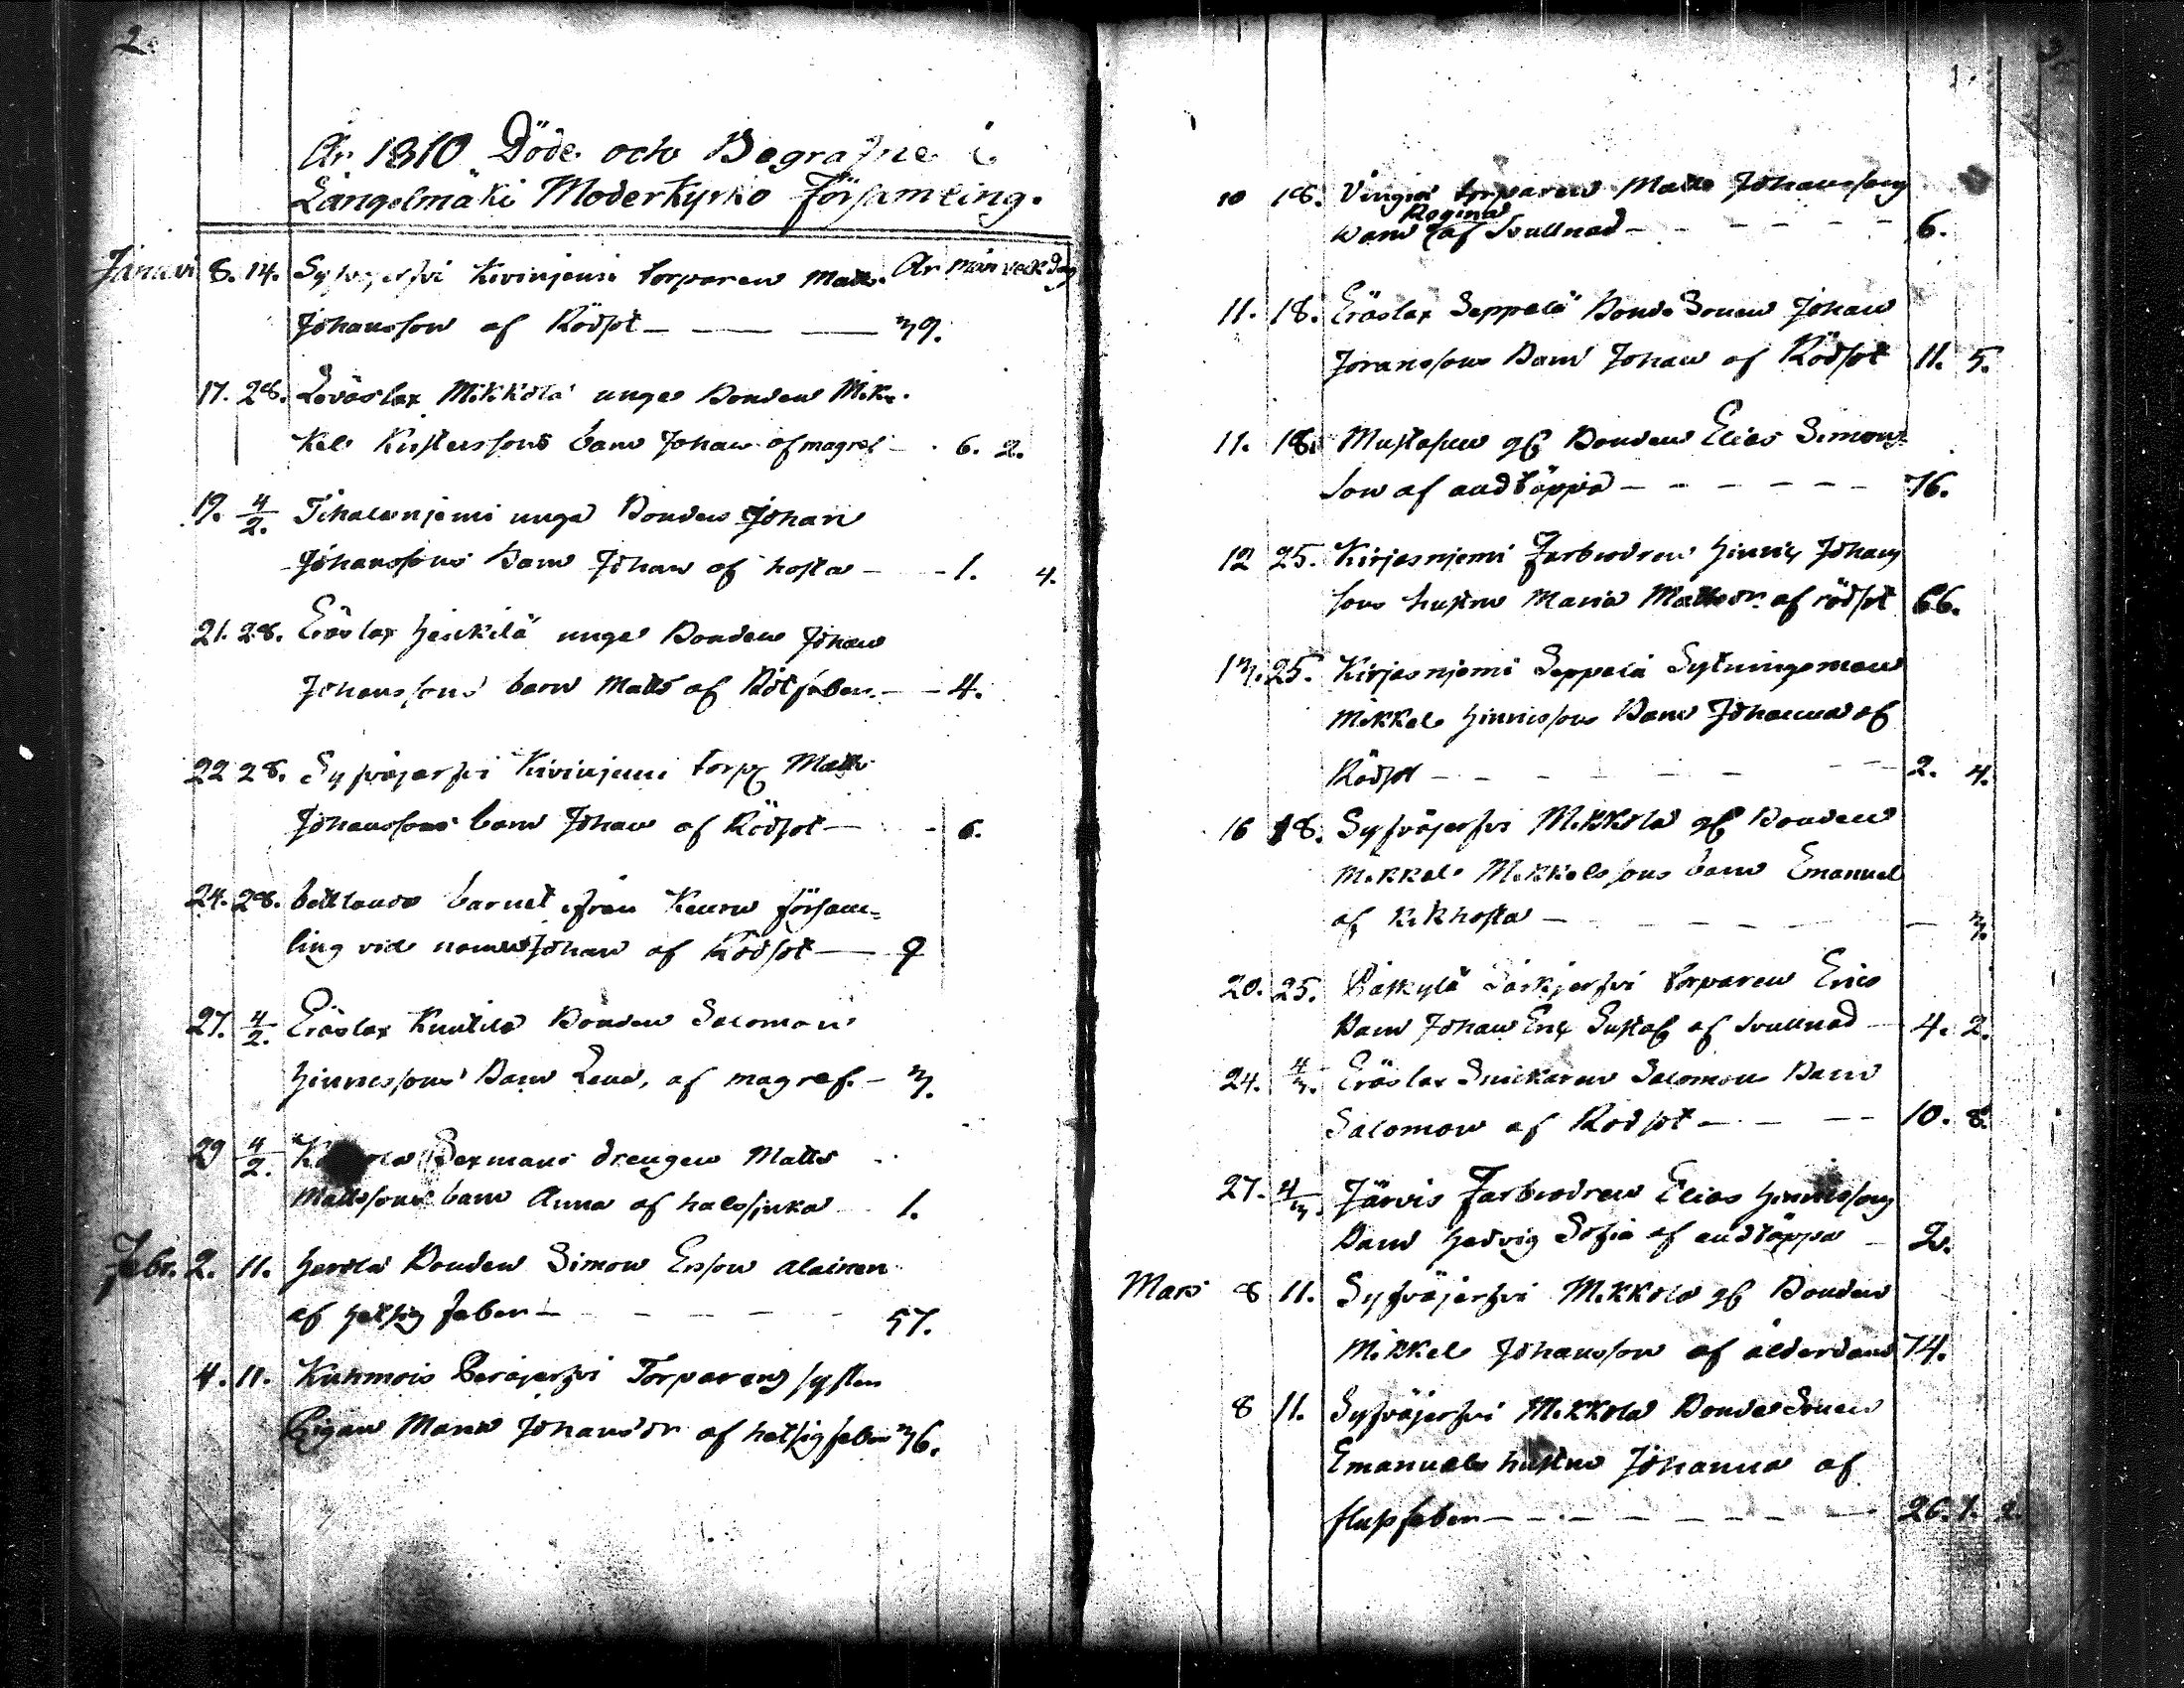 2.
År 1810 Döde och Begrafne i
Längelmäki Moderkyrko Församling.
Januari 8. 14. Syssjerfvi Kivinjemi torparen Matts År mån veck dag
Johansson af Rödsot — 39.
17. 28. Leväslax Mikkola unge Bonden Mik-
kel Kristerssons barn Johan af magref — 6. 2.
19. 4/2. Tihalanjemi unga Bonden Johan
Johanssons Barn Johan af hosta — 1. 4.
21. 28. Eräslax Heikkilä unge Bonden Johan
Johanssons barn Matts af Rötfeber — 4.
22 28. Syssväjerfvi Kivinjemi torp. Matts
Johanssons barn Johan af Rödsot — 6.
24. 28. bettlande barnet ifrån Keuru församl-
ling vid namn Johan af Rödsot — 9
27. 4/2. Eräslax Knutila Bonden Salomon
Hinricssons Barn Lena, af magref. — 3.
29 4/2. Dexmans drengen Matts
Mattssons barn Anna af halssjuka 1.
Febr. 2. 11. Herrola Bonden Simon Ersson Alainen
af hetsig feber — 57.
4. 11. Kuhmois Peräjerfvi Torparens syster
Pigan Maria Johansdr af hetsig feber 36.
10 18. torparen Matts Johanssons
Regina
barn af Svullnad — 6.
11. 18. Eräslax Seppälä Bonde Sonen Johan
Joranssons Barn Johan af Rödsot 11. 5.
11. 18. Mustasuu gl Bonden Elias Simons-
son af andtäppa — 76.
12 25. Kirjasnjemi Farbrodren Hinric Johans
sons hustru Maria Mattsdr. af rödsot 66.
13. 25. Kirjasnjemi Seppälä Sytningsman
Mikkel Hinricssons Barn Johanna af
Rödsot — 2. 4.
16 18. Syssväjerfvi Mikkola gl Bonden
Mikkel Mikkelssons barn Emanuel
af Kikhosta — 3.
20. 25. Särkjerfvi torparen Erics
Barn Johan Eric Gustaf af Svullnad — 4. 2.
24. 4/3. Eräslax Snickaren Salomons Barn
Salomon af Rödsot — 10. 8.
27. 4/3. Järvis Farbrodren Elias Hinricssons
Barn Hedvig Sofia af andtäppa — 2.
Mars 8 11. Syssväjerfvi Mikkola gl Bonden
Mikkel Johansson af ålderdom 74.
8 11. Syssväjerfvi Mikkola Bonde Sonen
Emanuels hustru Johanna af
flussfeber — 26. 1. 2.